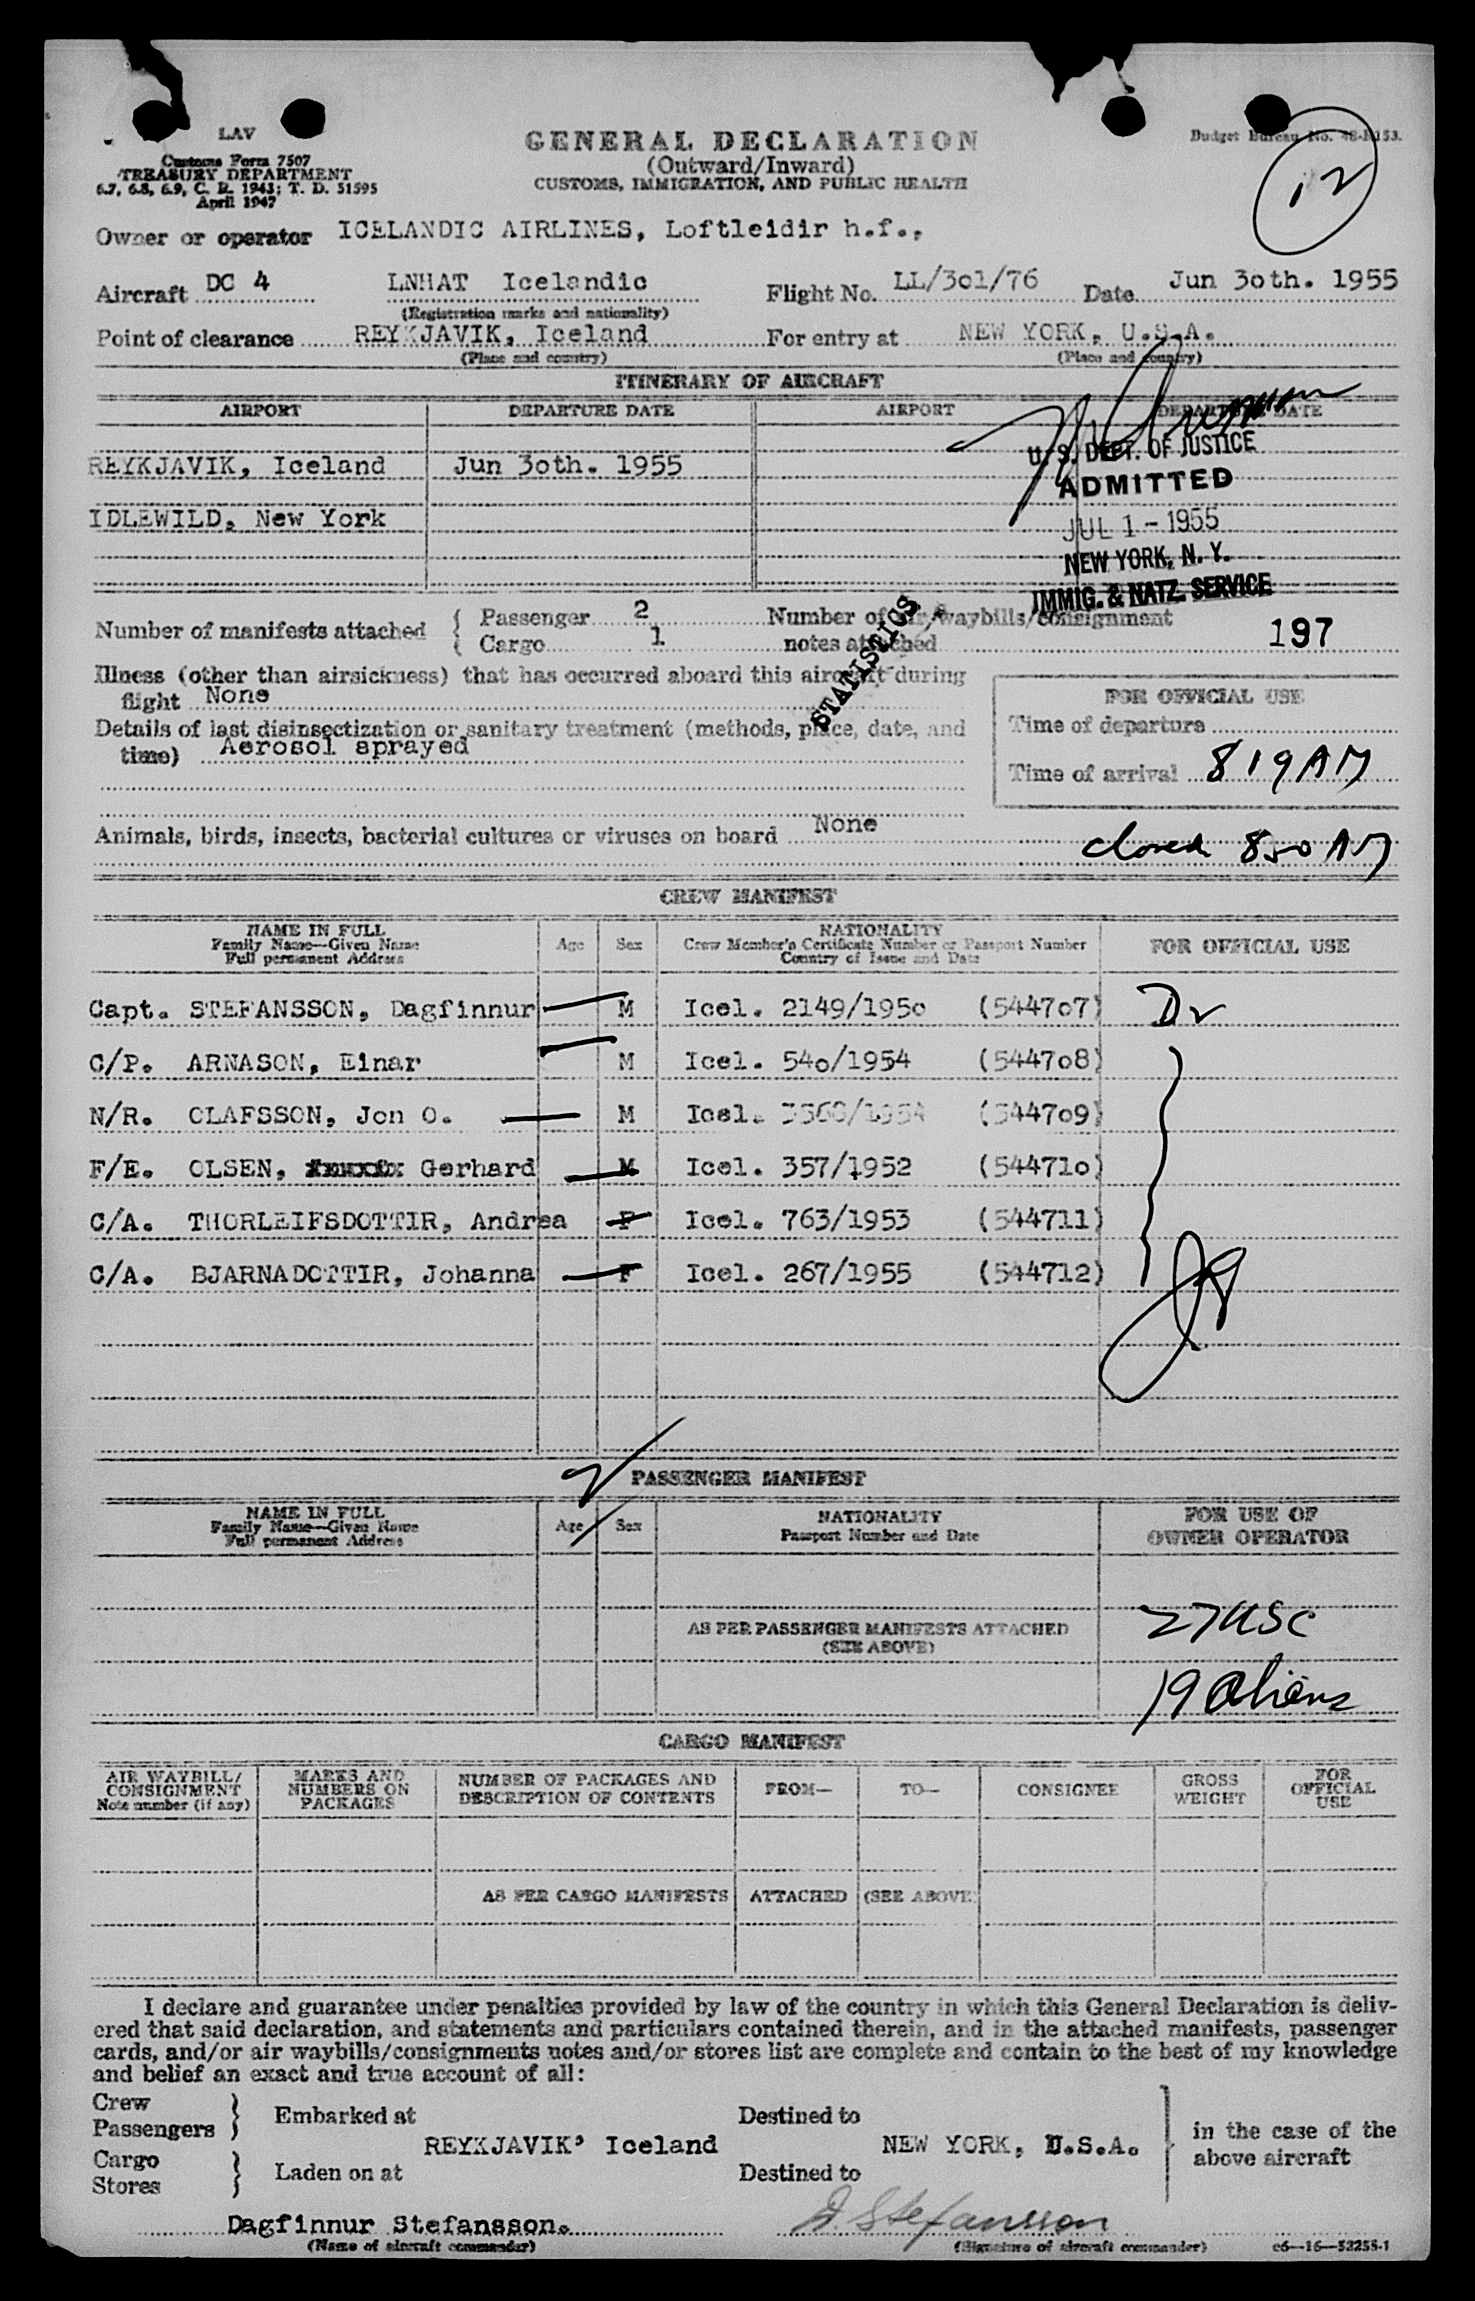 LAV
Customs Form 7507
TREASURY DEPARTMENT
6.7, 6.8, 6.9, C. R. 1943; T. D. 51595
April 1947
GENERAL DECLARATION
(Outward/Inward)
CUSTOMS, IMMIGRATION, AND PUBLIC HEALTH
Budget Bureau No. 48-R153.
12
Owner or operator ICELANDIC AIRLINES, Loftleidir h.f.,
Aircraft DC 4 LNHAT Icelandic Flight No. LL/3o1/76 Date Jun 3oth. 1955
(Registration marks and nationality)
Point of clearance REYKJAVIK, Iceland For entry at NEW YORK, U.S.A.
(Place and country) (Place and country)
ITINERARY OF AIRCRAFT
AIRPORT DEPARTURE DATE AIRPORT DEPARTURE DATE
REYKJAVIK, Iceland Jun 3oth. 1955
IDLEWILD, New York
U. S. DEPT. OF JUSTICE
ADMITTED
JUL 1 - 1955
NEW YORK, N. Y.
IMMIG. & NATZ. SERVICE
Number of manifests attached { Passenger 2 Number of air waybills/consignment
Cargo 1 notes attached 197
STATISTICS
Illness (other than airsickness) that has occurred aboard this aircraft during
flight None
Details of last disinsectization or sanitary treatment (methods, place, date, and
time) Aerosol sprayed
FOR OFFICIAL USE
Time of departure
Time of arrival 819 AM
Animals, birds, insects, bacterial cultures or viruses on board None
closed 850 AM
CREW MANIFEST
NAME IN FULL
Family Name—Given Name
Full permanent Address
Age Sex
NATIONALITY
Crew Member's Certificate Number or Passport Number
Country of Issue and Date
FOR OFFICIAL USE
Capt. STEFANSSON, Dagfinnur M Icel. 2149/195o (5447o7)
C/P. ARNASON, Einar M Icel. 54o/1954 (5447o8)
N/R. OLAFSSON, Jon O. M Icel. (5447o9)
F/E. OLSEN, Gerhard M Icel. 357/1952 (54471o)
C/A. THORLEIFSDOTTIR, Andrea F Icel. 763/1953 (544711)
C/A. BJARNADOTTIR, Johanna F Icel. 267/1955 (544712)
PASSENGER MANIFEST
NAME IN FULL
Family Name—Given Name
Full permanent Address
Age Sex
NATIONALITY
Passport Number and Date
FOR USE OF
OWNER OPERATOR
AS PER PASSENGER MANIFESTS ATTACHED
(SEE ABOVE)
27 USC
19 Aliens
CARGO MANIFEST
AIR WAYBILL/
CONSIGNMENT
Note number (if any)
MARKS AND
NUMBERS ON
PACKAGES
NUMBER OF PACKAGES AND
DESCRIPTION OF CONTENTS
FROM— TO— CONSIGNEE
GROSS
WEIGHT
FOR
OFFICIAL
USE
AS PER CARGO MANIFESTS ATTACHED (SEE ABOVE)
I declare and guarantee under penalties provided by law of the country in which this General Declaration is deliv-
ered that said declaration, and statements and particulars contained therein, and in the attached manifests, passenger
cards, and/or air waybills/consignments notes and/or stores list are complete and contain to the best of my knowledge
and belief an exact and true account of all:
Crew
Passengers } Embarked at Destined to
REYKJAVIK, Iceland NEW YORK, U.S.A.
in the case of the
above aircraft
Cargo
Stores } Laden on at Destined to
Dagfinnur Stefansson. D. Stefansson
(Name of aircraft commander) (Signature of aircraft commander) c6—16—52255-1